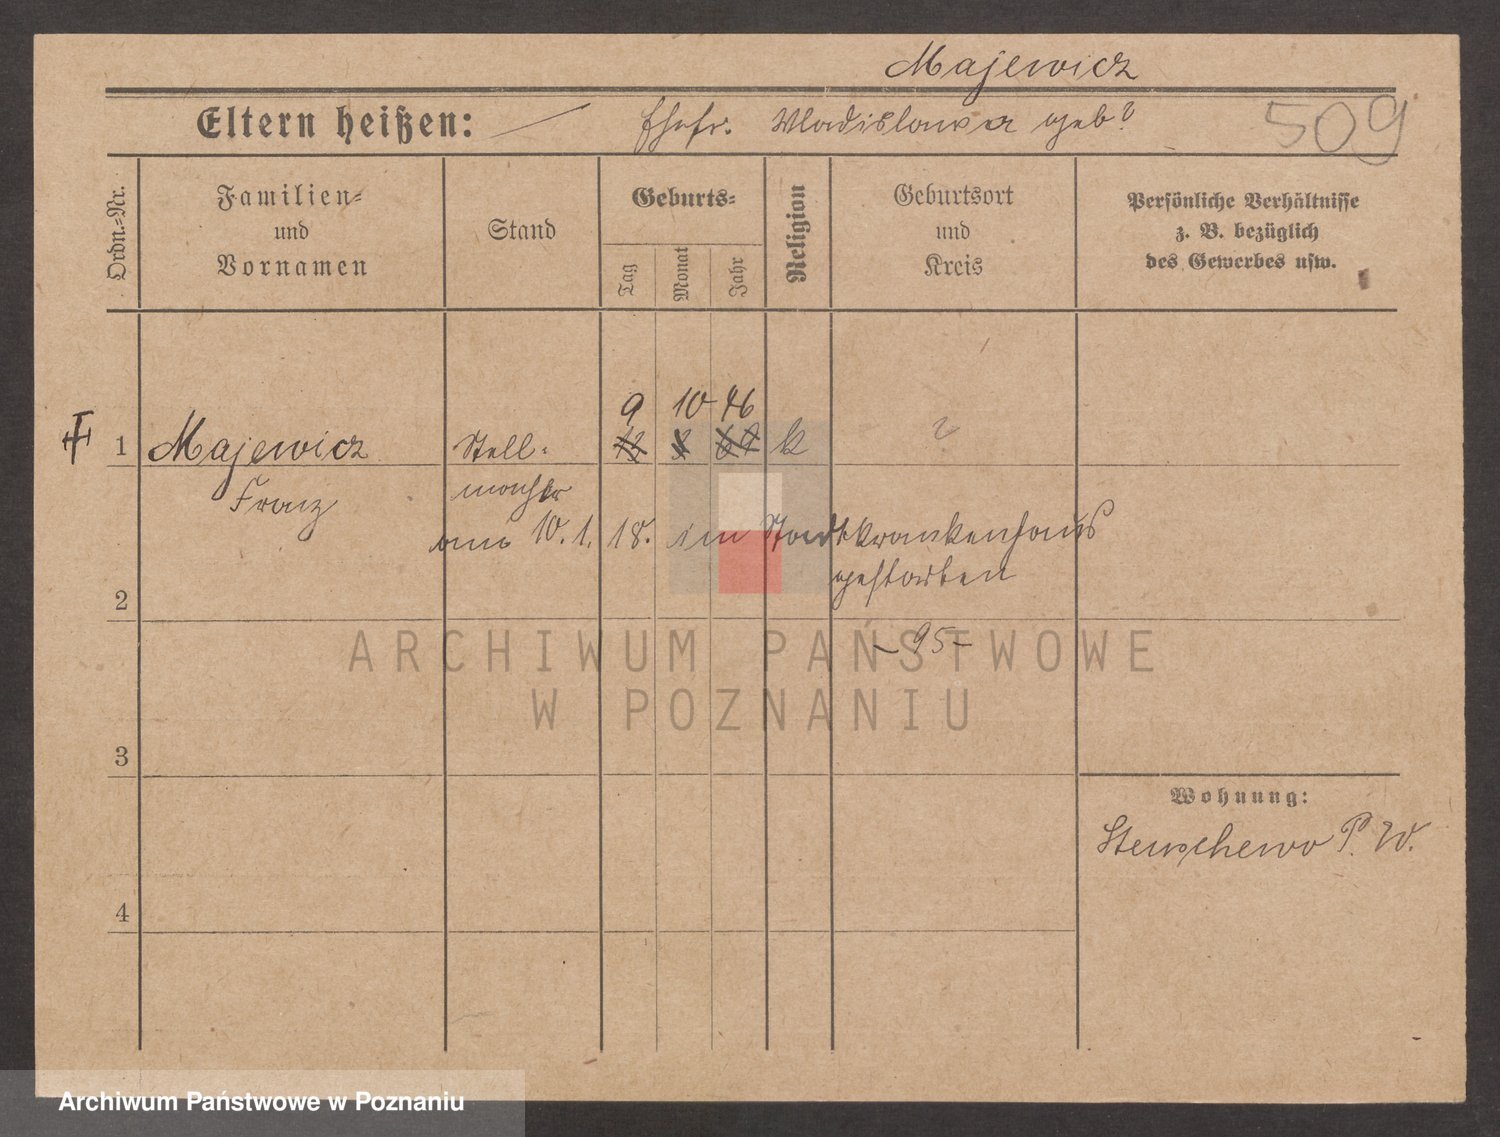 Majewicz
Eltern heißen: — Ehefr. Wladislawa geb? 509
Ordn.-Nr.
Familien-
und
Vornamen
Stand
Geburts-
Tag
Monat
Jahr
Religion
Geburtsort
und
Kreis
Persönliche Verhältnisse
z. B. bezüglich
des Gewerbes usw.
9 10 46
1 Majewicz Stell- k ?
Franz macher
am 10.1.18. im Stadtkrankenhaus
gestorben
2
- 95 -
ARCHIWUM PAŃSTWOWE
W POZNANIU
3
Wohnung:
Stenschewo P. W.
4
Archiwum Państwowe w Poznaniu